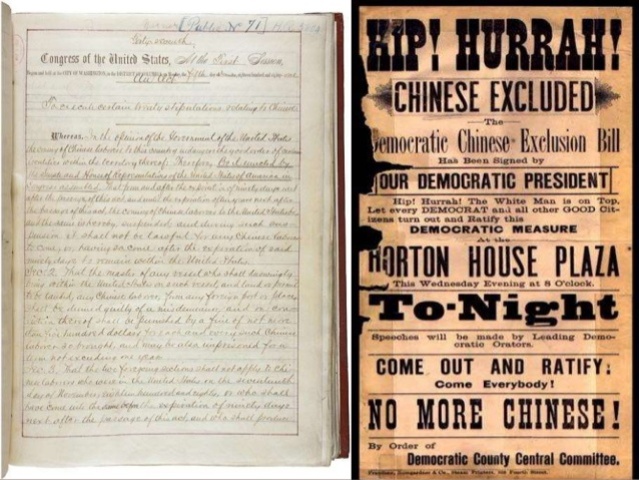 [Public No 71]
Forty-seventh
Congress of the United States, At the First Session,
An Act
To execute certain treaty stipulations relating to Chinese.
Whereas, In the opinion of the Government of the United States
the coming of Chinese laborers to this country endangers the good order of certain
localities within the territory thereof: Therefore, Be it enacted by
the Senate and House of Representatives of the United States of America in
Congress assembled, That from and after the expiration of ninety days next
after the passage of this act, and until the expiration of ten years next after
the passage of this act, the coming of Chinese laborers to the United States be
and the same is hereby suspended; and during such sus-
pension it shall not be lawful for any Chinese laborer
to come, or, having so come after the expiration of said
ninety days, to remain within the United States.
Sec. 2. That the master of any vessel who shall knowingly
bring within the United States on such vessel, and land or permit
to be landed, any Chinese laborer, from any foreign port or place,
shall be deemed guilty of a misdemeanor, and on convic-
tion thereof shall be punished by a fine of not more
than five hundred dollars for each and every such Chinese
laborer so brought, and may be also imprisoned for a
term not exceeding one year.
Sec. 3. That the two foregoing sections shall not apply to Chi-
nese laborers who were in the United States on the seventeenth
day of November, eighteen hundred and eighty, or who shall
have come into the same before the expiration of ninety days
next after the passage of this act, and who shall produce
HIP! HURRAH!
CHINESE EXCLUDED
The
Democratic Chinese Exclusion Bill
Has Been Signed by
OUR DEMOCRATIC PRESIDENT
Hip! Hurrah! The White Man is on Top.
Let every DEMOCRAT and all other GOOD Cit-
izens turn out and Ratify this
DEMOCRATIC MEASURE
At the
HORTON HOUSE PLAZA
This Wednesday Evening at 8 O'clock.
To-Night
Speeches will be made by Leading Demo-
cratic Orators.
COME OUT AND RATIFY;
Come Everybody!
NO MORE CHINESE!
By Order of
Democratic County Central Committee.